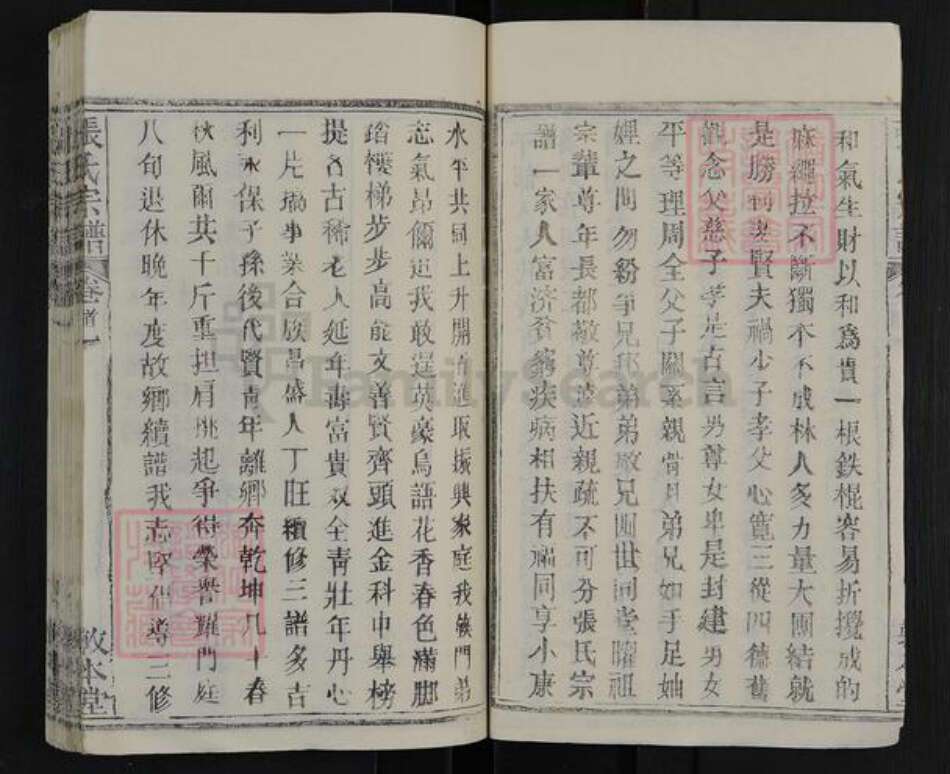 和氣生財以和為貴一根鉄棍容易折攪成的
麻繩拉不斷獨木不成林人多力量大團結就
是勝利妻賢夫禍少子孝父心寬三從四德舊
觀念父慈子孝是古言男尊女卑是封建男女
平等理周全父子關系親骨月弟兄如手足妯
娌之間勿紛爭兄和弟弟敬兄四世同堂耀祖
宗輩尊年長都敬尊遠近親疏不可分張氏宗
譜一家人富济貧窮疾病相扶有福同享小康
水平共同上升開拓進取振興家庭我族門弟
志氣昂爾追我敢逞英豪鳥語花香春色滿脚
踏樓梯步步高能文善賢齊頭進金科中舉榜
提古稀老人延年壽富貴双全青壯年丹心
一片搞事業合族昌盛人丁旺續修三譜多吉
利永保子孫後代賢青年離鄉奔乾坤几十春
秋風雨共千斤重担肩挑起爭得榮譽耀門庭
八旬退休晚年度故鄉續譜我志堅倡導三修
張氏宗譜
卷首一
敦本堂
FamilySearch